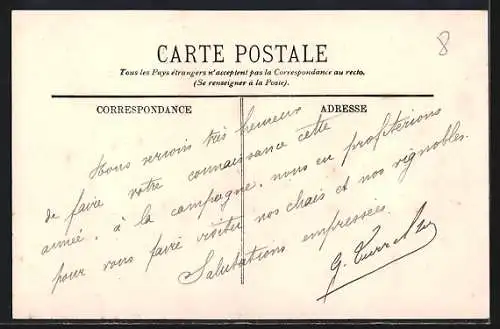 8
CARTE POSTALE
Tous les Pays étrangers n'acceptent pas la Correspondance au recto.
(Se renseigner à la Poste).
CORRESPONDANCE
ADRESSE
Nous serions très heureux
de faire votre connaissance cette
année, à la campagne, nous en profiterions
pour vous faire visiter nos chais et nos vignobles.
Salutations empressées.
G.